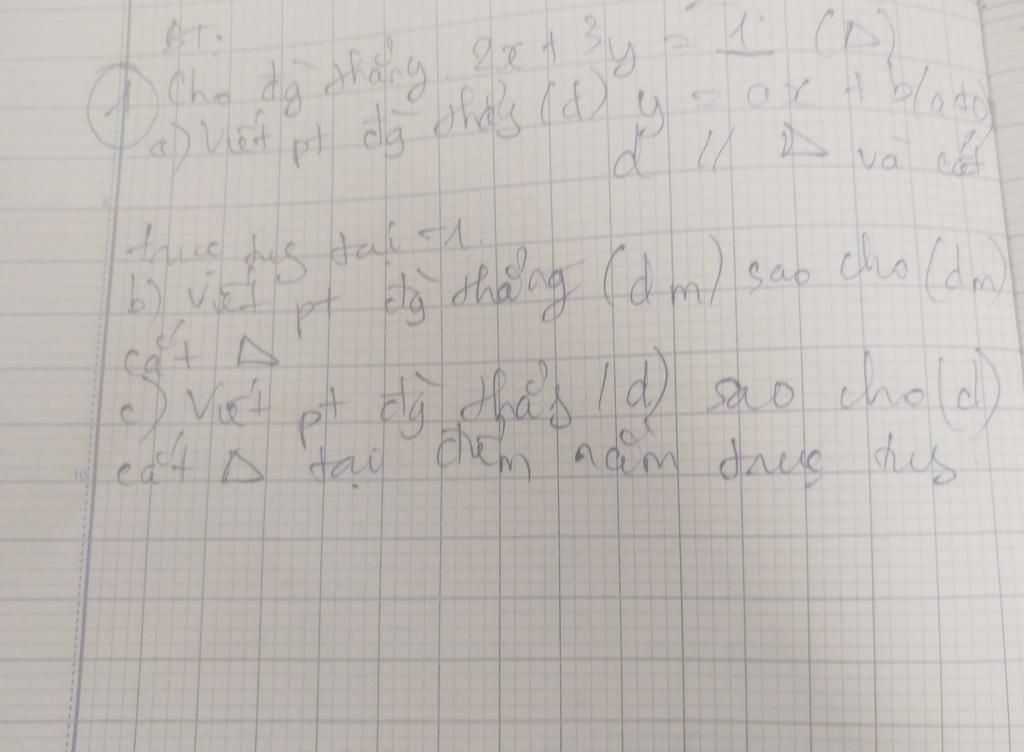 BT:
1 Cho đg thẳng 2x + 3y = 1 (Δ)
a) Viết pt đg thẳg (d) y = ax + b (a ≠ 0)
d // Δ và cắt
trục tug tại -1.
b) Viết pt đg thẳng (dm) sao cho (dm)
cắt Δ
c) Viết pt đg thẳg (d) sao cho (d)
cắt Δ tại điểm nằm trục tug